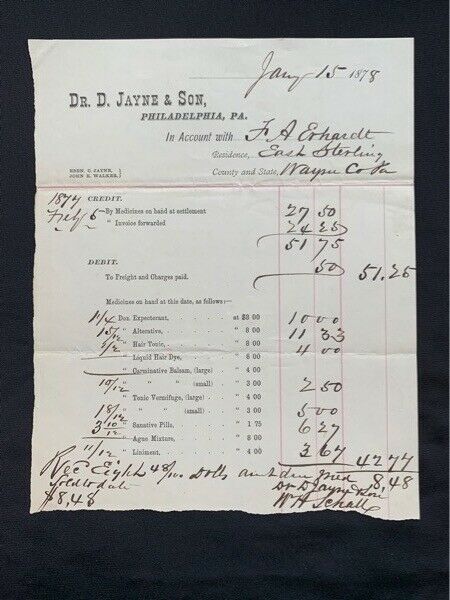 Jany 15 1878
DR. D. JAYNE & SON,
PHILADELPHIA, PA.
In Account with F A Erhardt
Residence, East Sterling
EBEN. C. JAYNE,
JOHN K. WALKER. County and State, Wayne Co Pa
1877 CREDIT.
Feby 6 By Medicines on hand at settlement 27 50
" Invoice forwarded 24 25
51 75
DEBIT. 50 51.25
To Freight and Charges paid.
Medicines on hand at this date, as follows:—
1 1/4 Doz. Expectorant, at $8 00 10 00
1 5/12 " Alterative, " 8 00 11 33
1/2 " Hair Tonic, " 8 00 4 00
" Liquid Hair Dye, " 6 00
" Carminative Balsam, (large) " 4 00
10/12 " " " (small) " 3 00 2 50
" Tonic Vermifuge, (large) " 4 00
1 8/12 " " " (small) " 3 00 5 00
3 10/12 " Sanative Pills, " 1 75 6 27
" Ague Mixture, " 8 00
11/12 " Liniment, " 4 00 3 67 42 77
Rec Eight 48/100 Dolls 8,48
to date Dr D Jayne & Son
$8,48 W H Schall